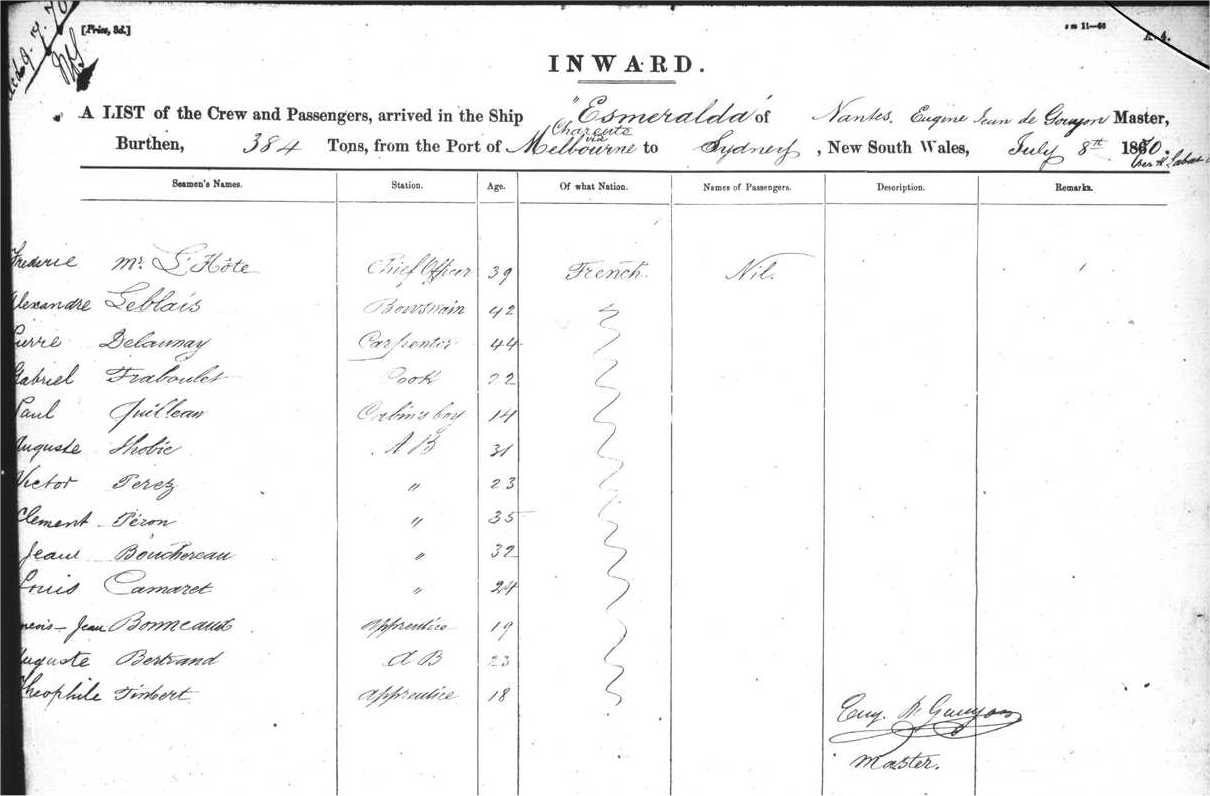 [Price, 3d.]
INWARD.
A LIST of the Crew and Passengers, arrived in the Ship "Esmeralda" of Nantes, Eugène Jean de Gouyon Master,
Charente
via
Burthen, 384 Tons, from the Port of Melbourne to Sydney, New South Wales, July 8th 1870.
Seamen's Names. Station. Age. Of what Nation. Names of Passengers. Description. Remarks.
Frédéric Mr. L'Hôte Chief Officer 39 French. Nil.
Alexandre Leblais Bowswain 42
Pierre Delaunay Carpenter 44
Gabriel Fraboulet Cook 22
Paul Quillean Cabin's boy 14
Auguste Thobie A B 31
Victor Perez " 23
Clement Péron " 35
Jean Bouchereau " 32
Louis Camaret " 24
Jean Bonneaud apprentice 19
Auguste Bertrand A B 23
Théophile Timbert apprentice 18
Eug. De Gouyon
Master.